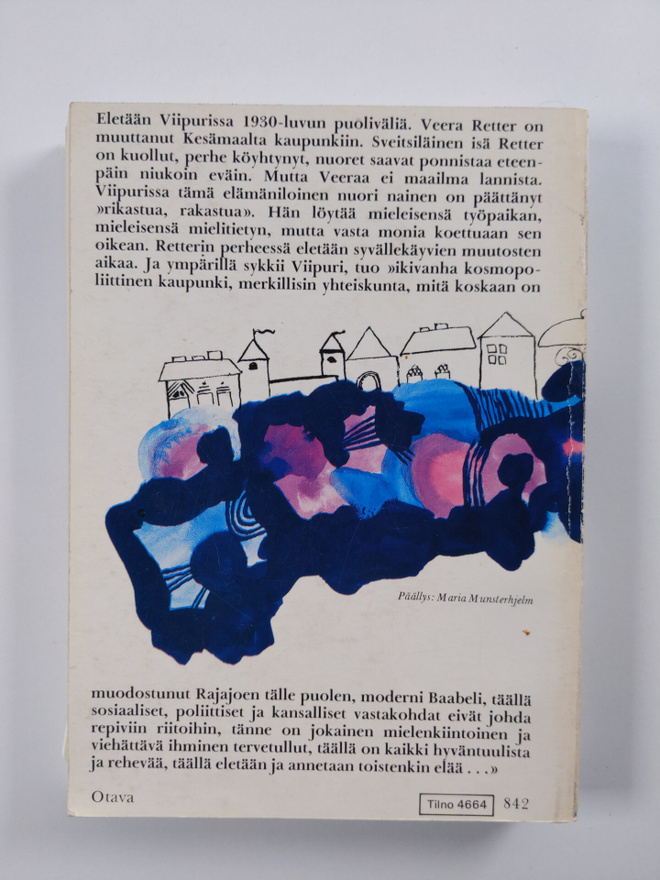 Eletään Viipurissa 1930-luvun puoliväliä. Veera Retter on
muuttanut Kesämaalta kaupunkiin. Sveitsiläinen isä Retter
on kuollut, perhe köyhtynyt, nuoret saavat ponnistaa eteen-
päin niukoin eväin. Mutta Veeraa ei maailma lannista.
Viipurissa tämä elämäniloinen nuori nainen on päättänyt
»rikastua, rakastua». Hän löytää mieleisensä työpaikan,
mieleisensä mielitietyn, mutta vasta monia koettuaan sen
oikean. Retterin perheessä eletään syvällekäyvien muutosten
aikaa. Ja ympärillä sykkii Viipuri, tuo »ikivanha kosmopo-
liittinen kaupunki, merkillisin yhteiskunta, mitä koskaan on
Päällys: Maria Munsterhjelm
muodostunut Rajajoen tälle puolen, moderni Baabeli, täällä
sosiaaliset, poliittiset ja kansalliset vastakohdat eivät johda
repiviin riitoihin, tänne on jokainen mielenkiintoinen ja
viehättävä ihminen tervetullut, täällä on kaikki hyväntuulista
ja rehevää, täällä eletään ja annetaan toistenkin elää . . .»
Otava
Tilno 4664
842